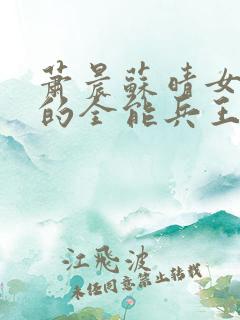 蕭晨蘇晴女
的全能兵王
江飛波
未任同意禁止转载